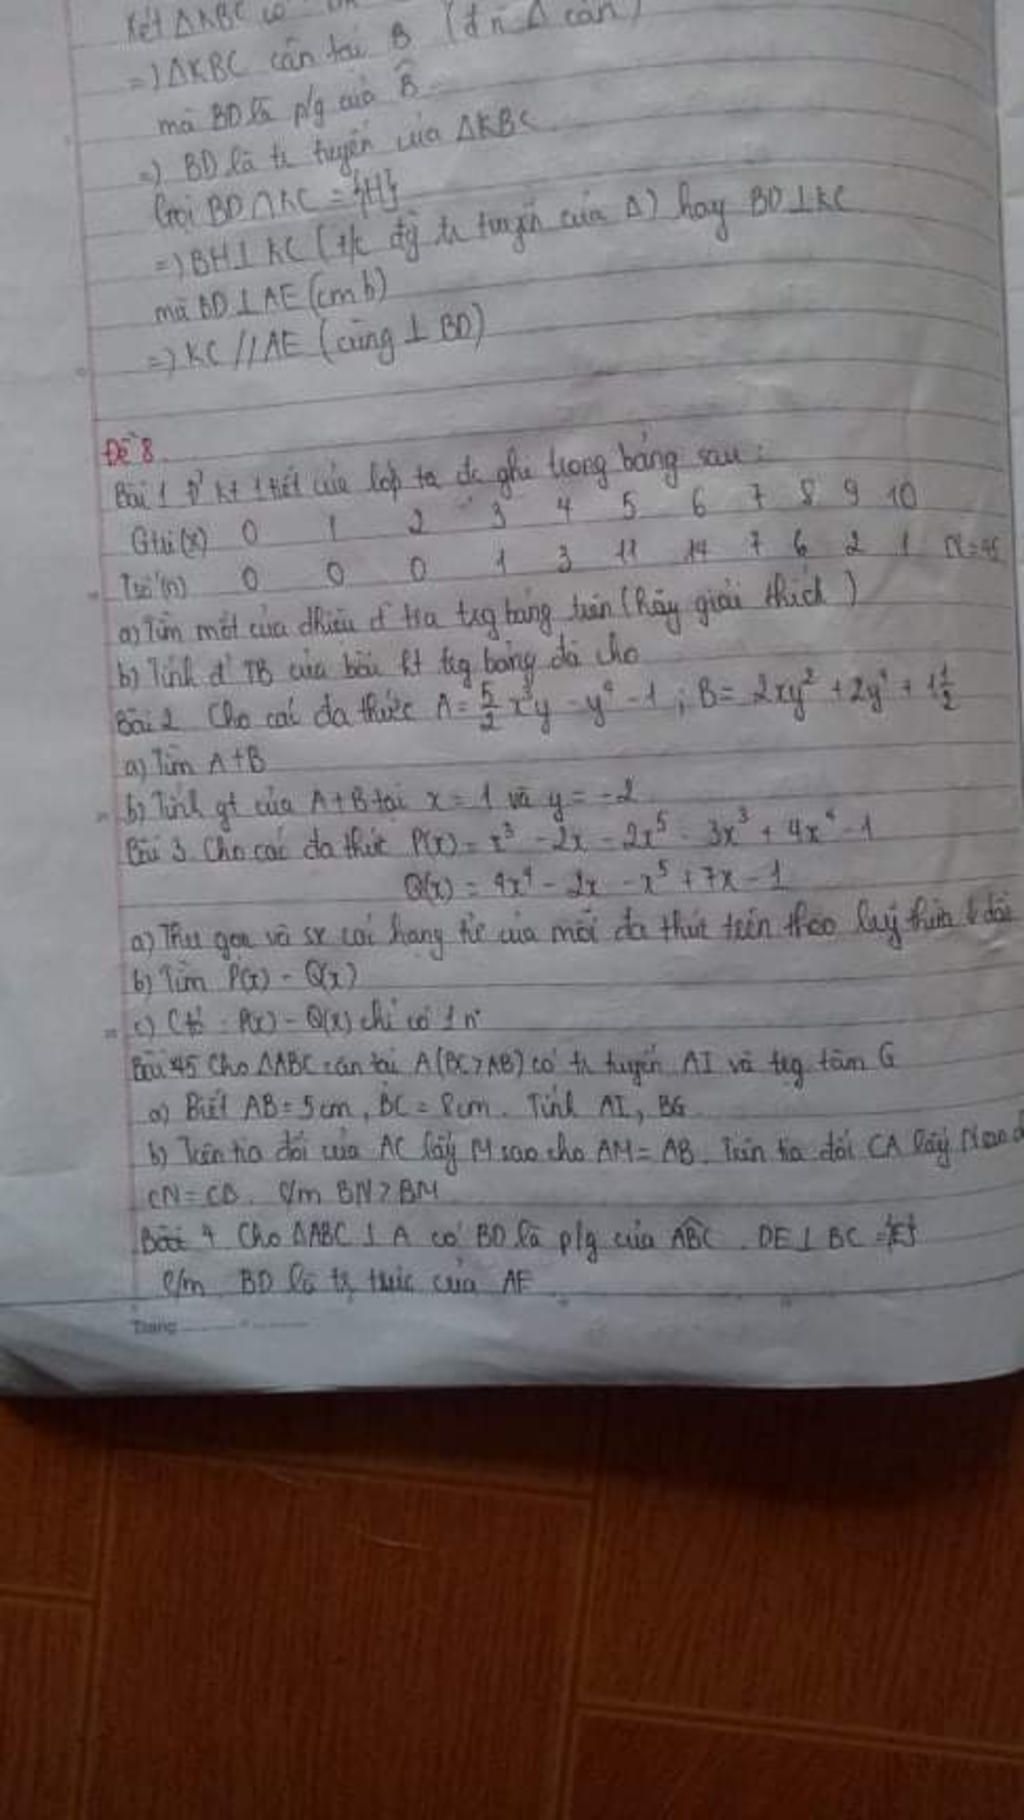 Xét ΔKBC có
=> ΔKBC cân tại B (đ n Δ cân)
mà BD là p/g của B̂
=> BD là tr tuyến của ΔKBC
Gọi BD∩KC = {H}
=> BH⊥KC (t/c đg tr tuyến của Δ) hay BD⊥KC
mà BD⊥AE (cmb)
=> KC//AE (cùng ⊥ BD)
Đề 8.
Bài 1 Đ' kt 1 tiết của lớp 7a đc ghi trong bảng sau:
Gtrị(x) 0 1 2 3 4 5 6 7 8 9 10
Tsố(n) 0 0 0 1 3 11 14 7 6 2 1 N=45
a) Tìm mốt của dhiệu đ tra trg bảng trên (Hãy giải thích)
b) Tính đ' TB của bài kt trg bảng đã cho
Bài 2 Cho các đa thức A = 5/2 x³y - y⁴ - 1; B = 2xy² + 2y⁴ + 1 1/2
a) Tìm A+B
b) Tính gt của A+B tại x = 1 và y = -2
Bài 3. Cho các đa thức P(x) = x³ - 2x - 2x⁵ - 3x³ + 4x⁴ - 1
Q(x) = 4x⁴ - 2x - x⁵ + 7x - 1
a) Thu gọn và sx các hạng tử của mỗi đa thức trên theo luỹ thừa ↓ dần
b) Tìm P(x) - Q(x)
c) Ctỏ: P(x) - Q(x) chỉ có 1 n°
Bài 45 Cho ΔABC cân tại A (BC>AB) có tr tuyến AI và trg tâm G
a) Biết AB = 5cm, BC = 8cm. Tính AI, BG
b) Trên tia đối của AC lấy M sao cho AM = AB. Trên tia đối CA lấy N sao
CN = CB. C/m BN > BM
Bài 4 Cho ΔABC ⊥ A có BD là p/g của ABC. DE⊥BC = {E}
C/m BD là tr trực của AE
Trang